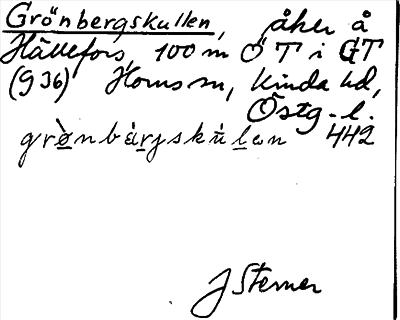 Grönbergskullen, åker å
Hällefors, 100 m Ö T i GT
(936) Horns sn, Kinda hd,
Östg. l.
grø̀nbærjskùlen 442
J Sterner